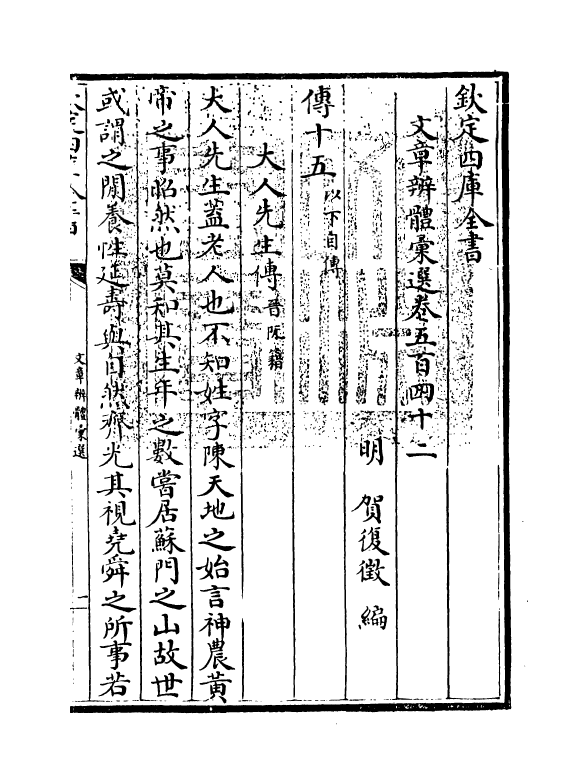 欽定四庫全書
文章辨體彙選卷五百四十二
明 賀復徵 編
傳十五以下自傳
大人先生傳晉阮籍
大人先生蓋老人也不知姓字陳天地之始言神農黃
帝之事昭然也莫知其生年之數嘗居蘇門之山故世
或謂之閑養性延壽與自然齊光其視堯舜之所事若
文章辨體彙選
一